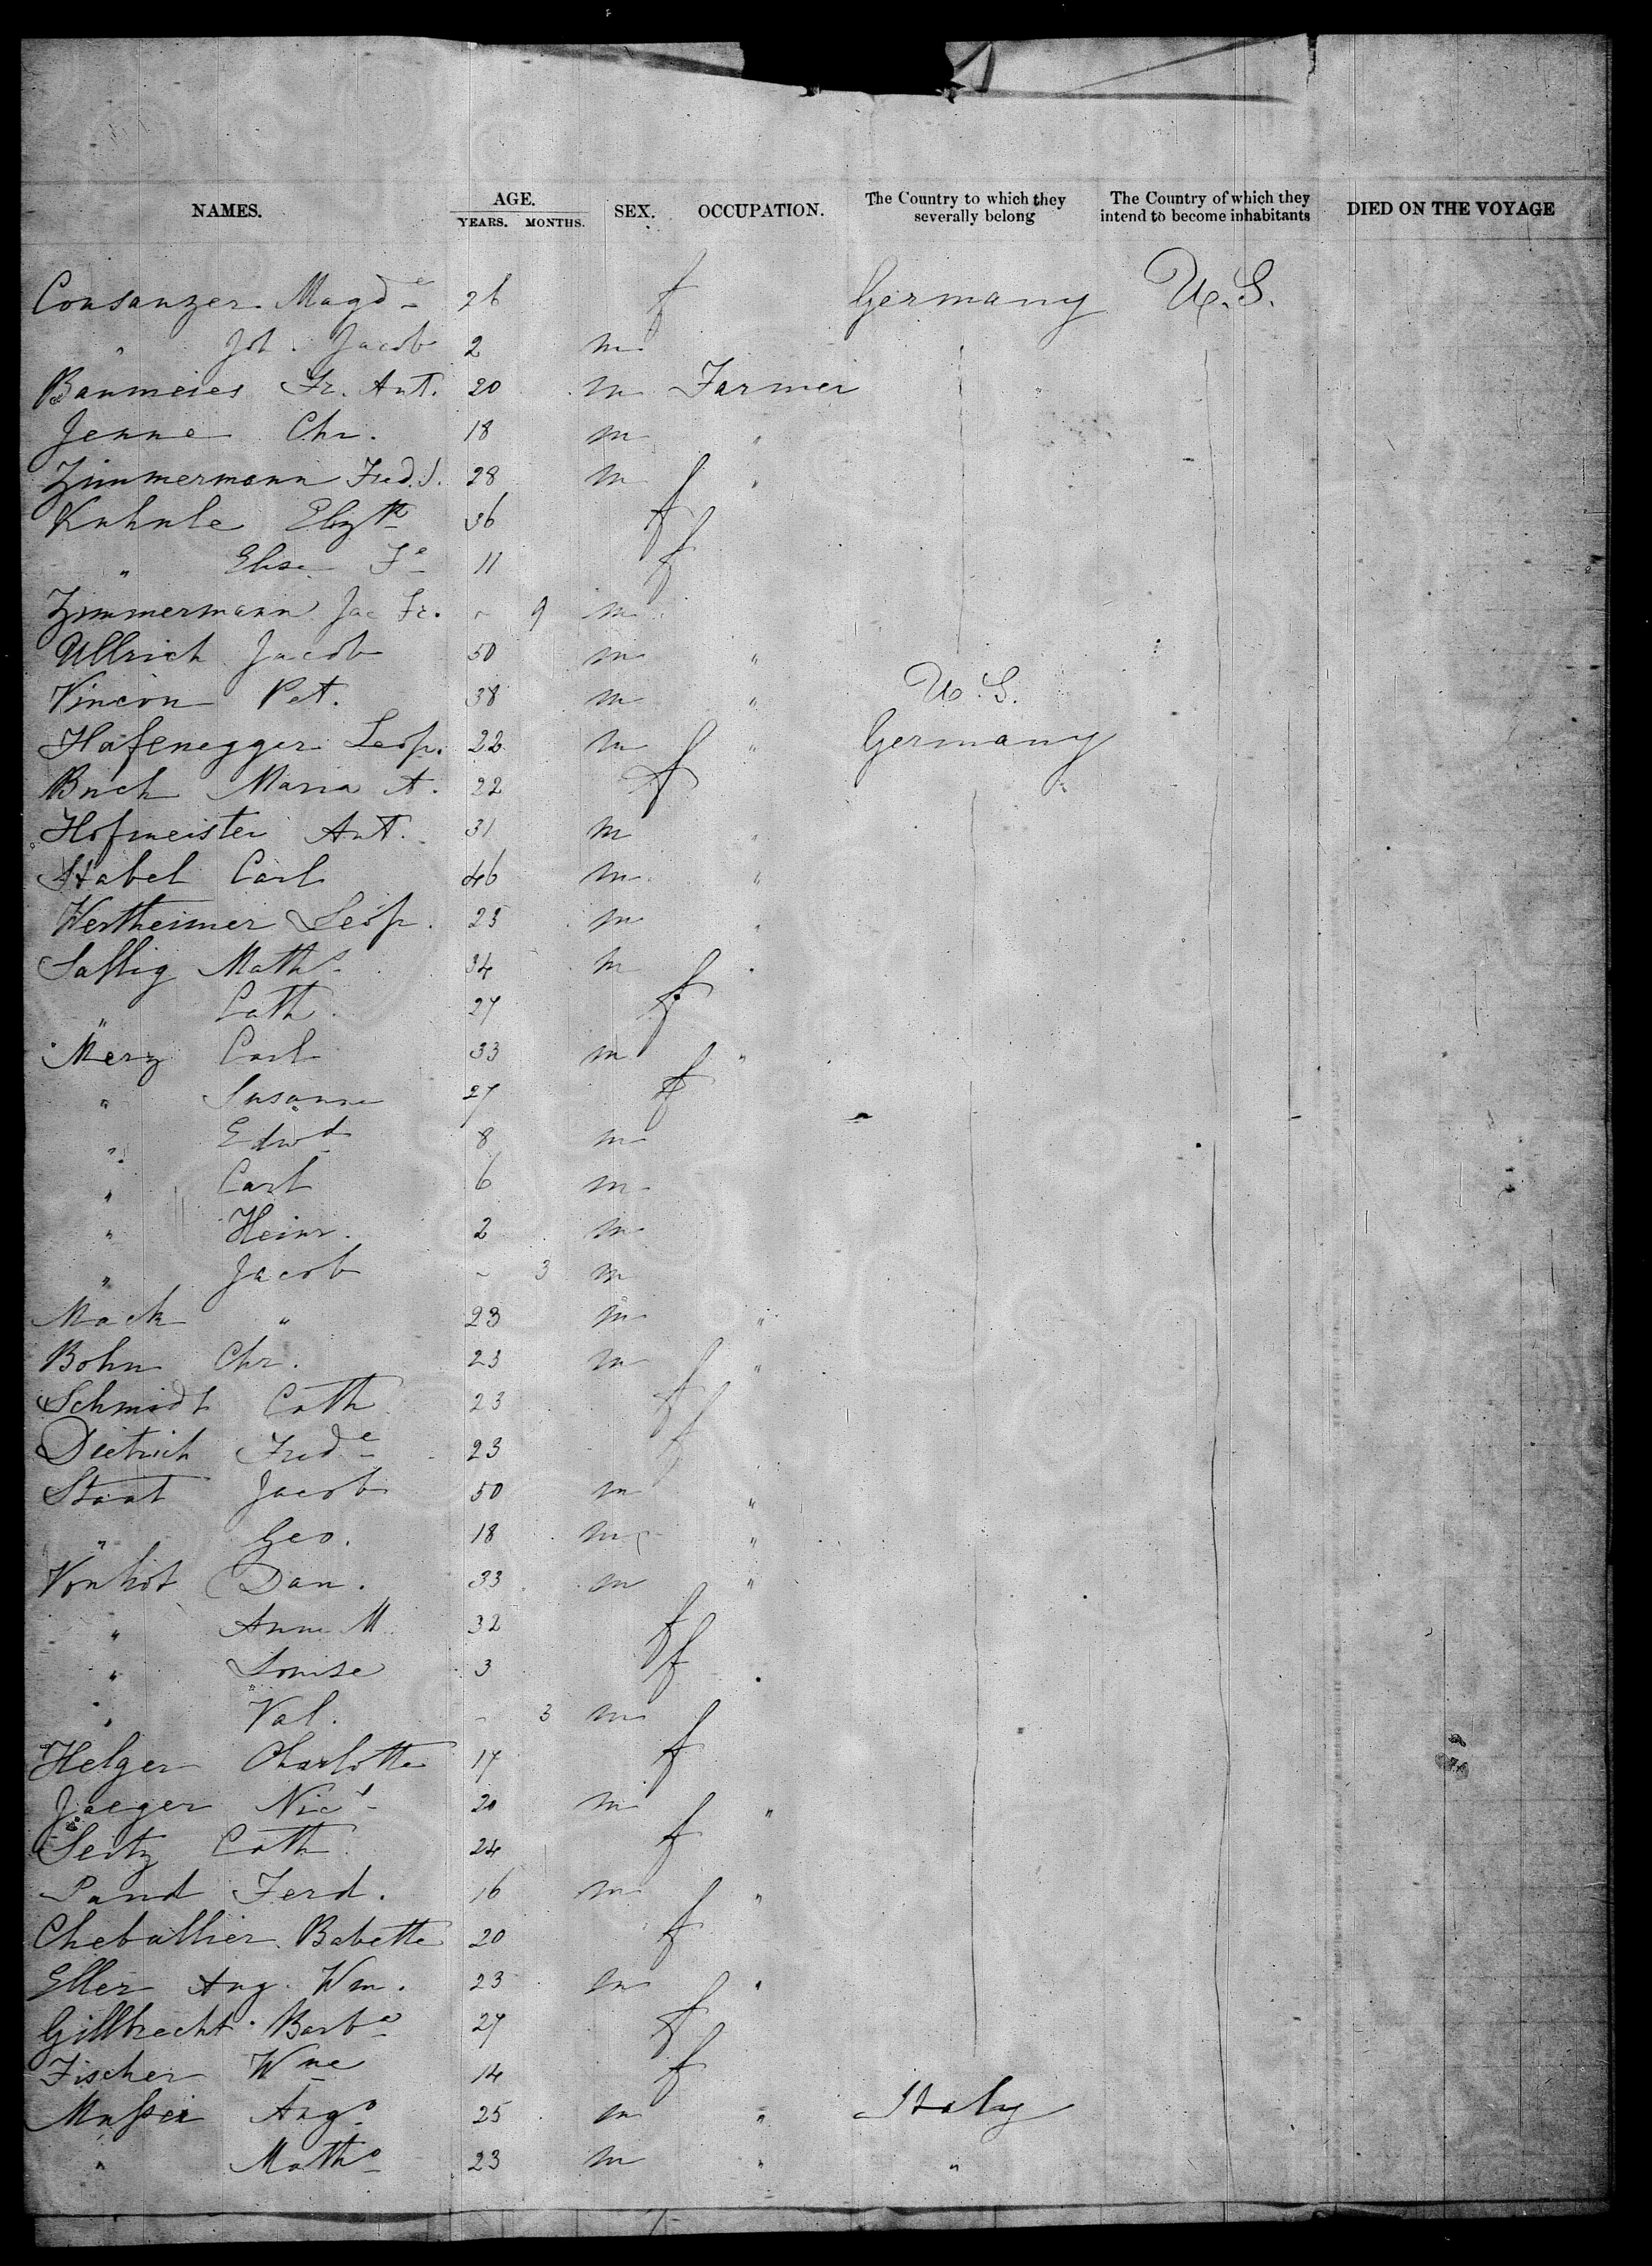 NAMES. AGE. YEARS. MONTHS. SEX. OCCUPATION. The Country to which they severally belong The Country of which they intend to become inhabitants DIED ON THE VOYAGE
Consanzer Magde 26 f Germany U.S.
" Joh. Jacob 2 m
Baumeies Fr. Ant. 20 m Farmer
Jenne Chr. 18 m "
Zimmermann Fred. J. 28 m "
Kuhnle Elizth 36 f
" Elise Fe 11 f
Zimmermann Jac Fr. - 9 m
Ullrich Jacob 50 m "
Vincon Pet. 38 m " U.S.
Hafenegger Leop. 22 m " Germany
Buch Maria A. 22 f
Hofmeister Ant. 31 m "
Stabel Carl 46 m "
Wertheimer Leop. 25 m "
Saßig Maths 34 m "
" Cath. 27 f
Merz Carl 33 m "
" Susanne 27 f
" Edwd 8 m
" Carl 6 m
" Heinr. 2 m
" Jacob - 3 m
Mack " 23 m "
Bohn Chr. 23 m "
Schmidt Cath 23 f
Dietrich Frede 23 f
Staat Jacob 50 m "
" Geo. 18 m "
Vonhot Dan. 33 m "
" Anna M. 32 f
" Louise 3 f
" Val. - 3 m
Helger Charlotte 17 f
Jaeger Nics 20 m "
Seitz Cath 24 f
Pand Ferd. 16 m "
Cheballier Babette 20 f
Eller Aug. Wm. 23 m "
Gillbrecht Barba 27 f
Fischer Wne 14 f
Mußei Ango 25 m " Italy
" Matho 23 m " "